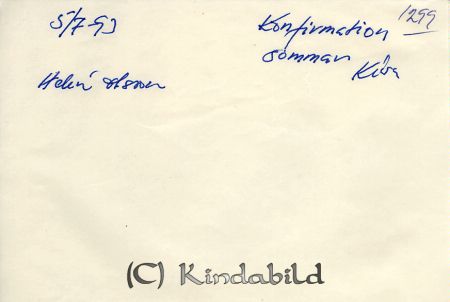 5/7-93
Konfirmation
1299
sommar
Kisa
Helén Olsson
(C) Kindabild